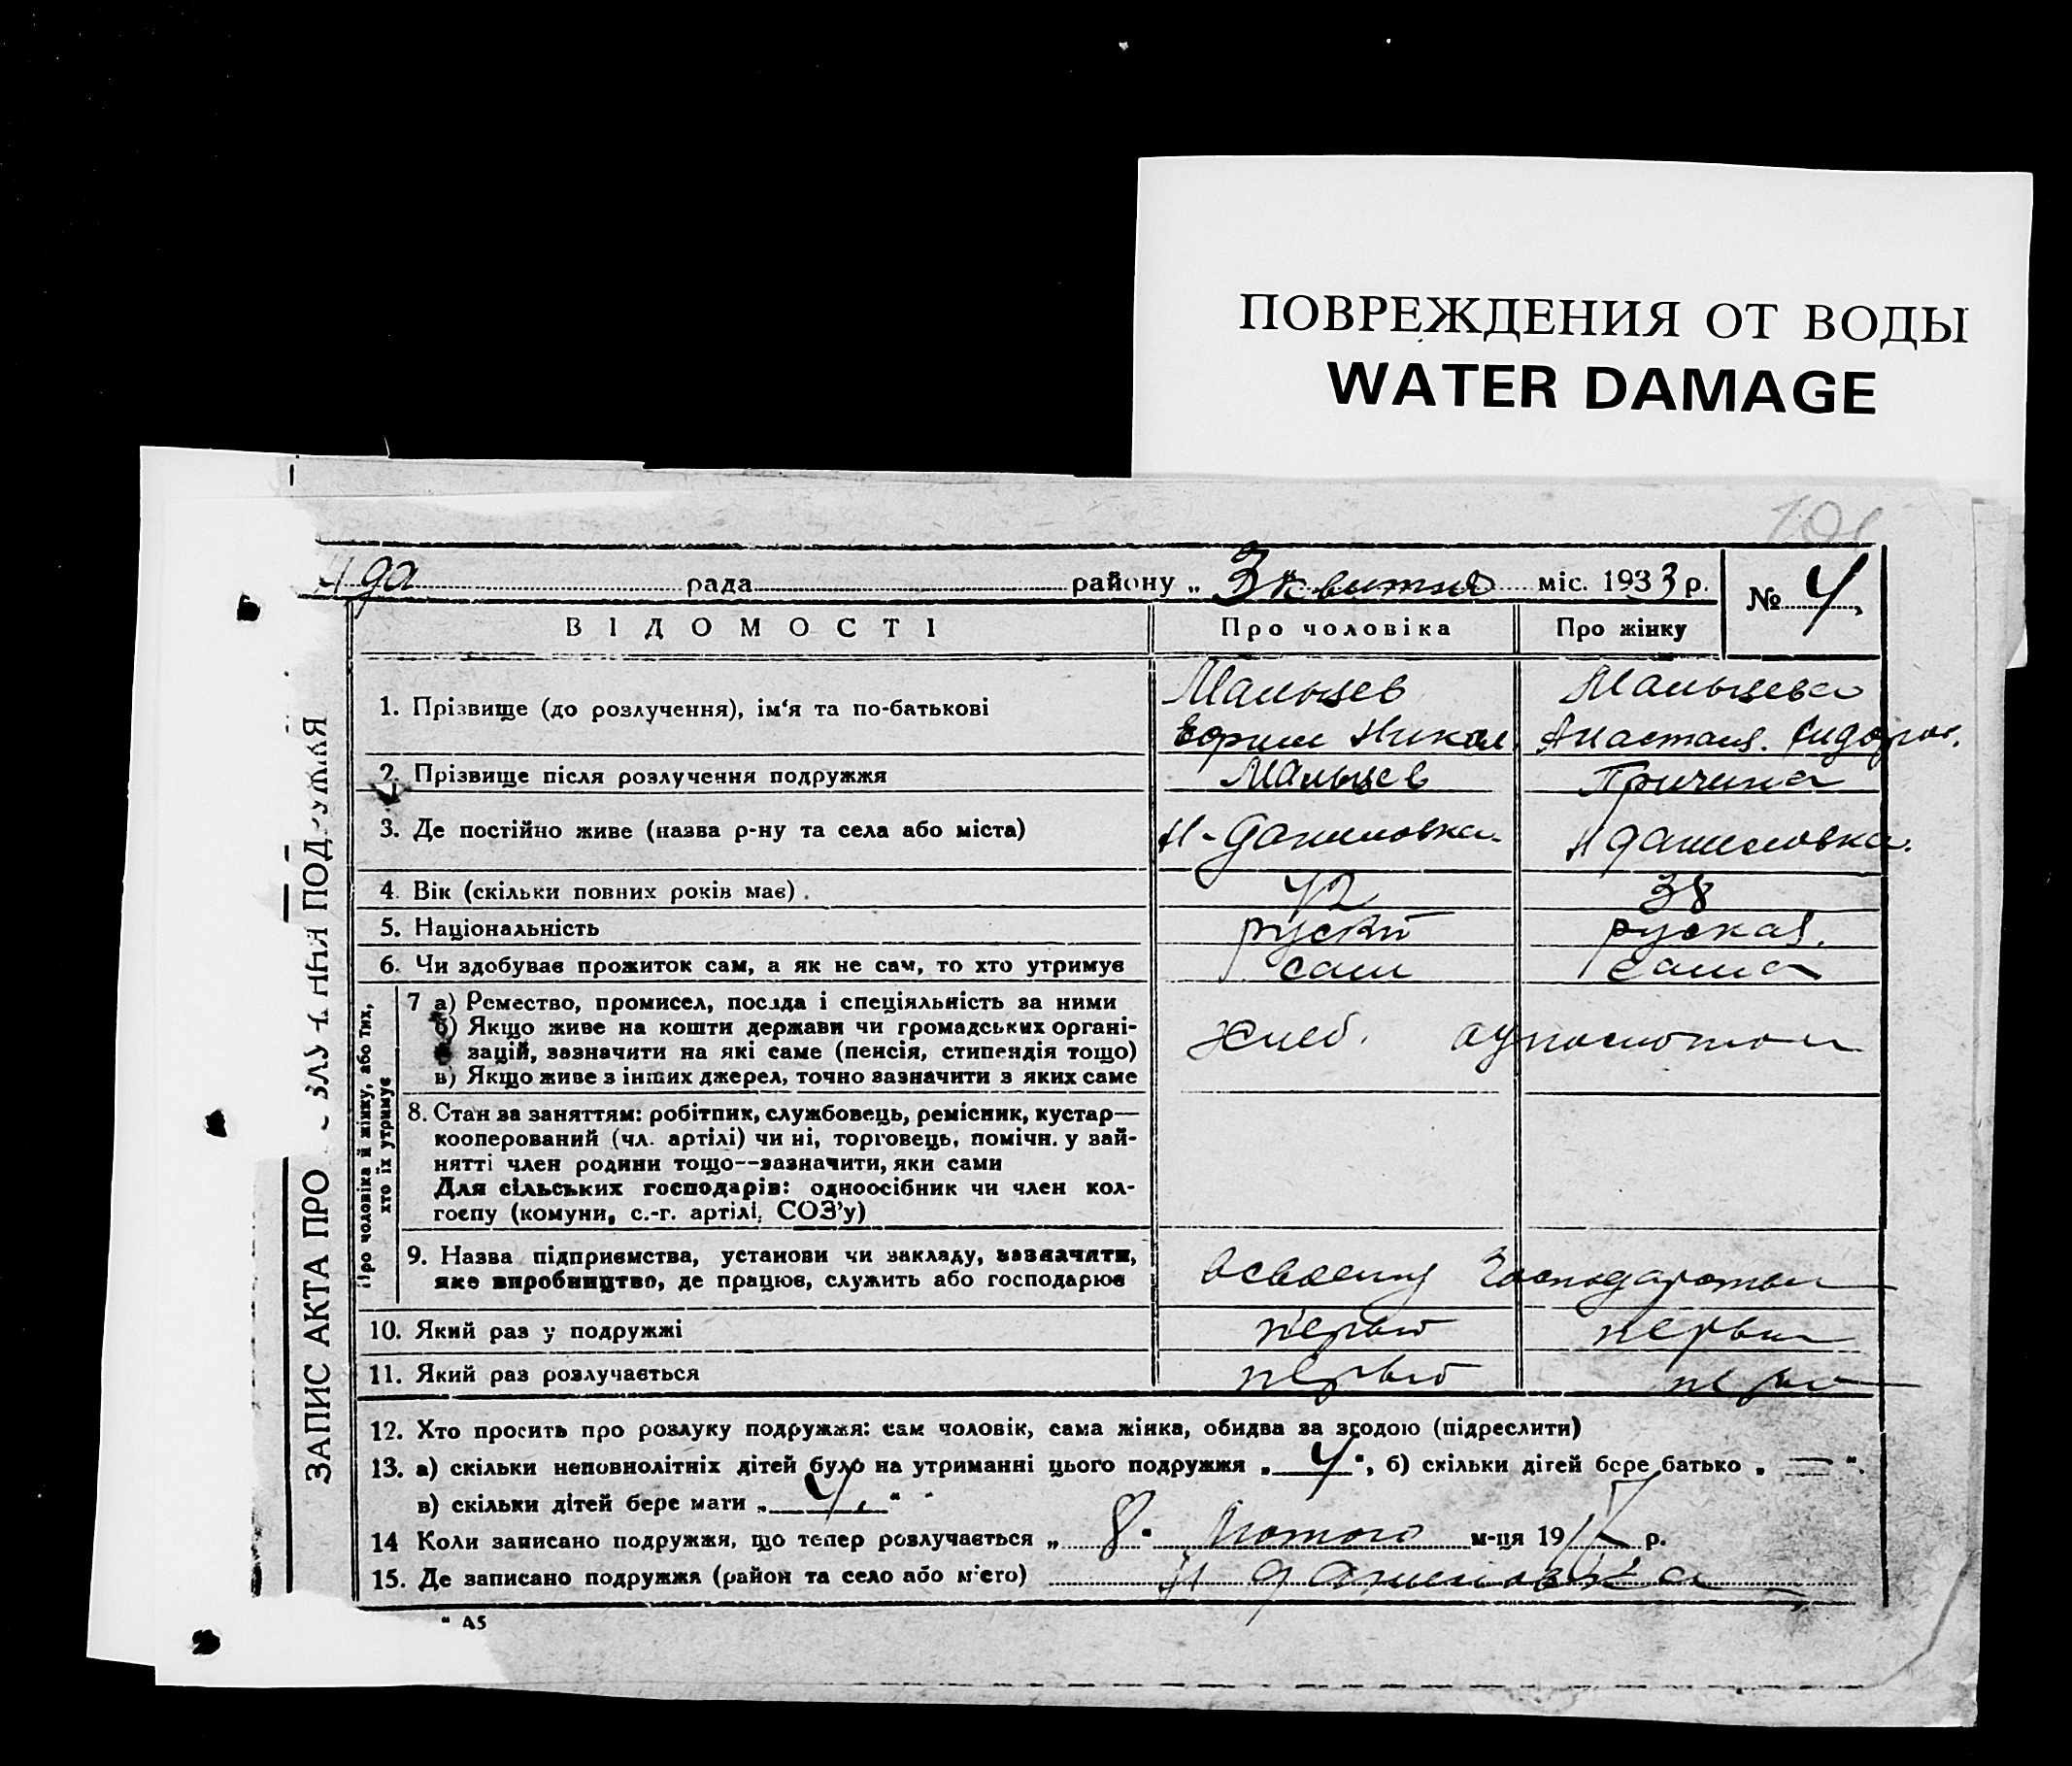 ПОВРЕЖДЕНИЯ ОТ ВОДЫ
WATER DAMAGE
101
рада района „ 3 " квитня міс. 1933 р. № 4
ВІДОМОСТІ Про чоловіка Про жінку
1. Прізвище (до розлучення), ім'я та по-батькові Мальцев Мальцева
Ефрим Никол. Анастася. Сидоров.
2. Прізвище після розлучення подружжя Мальцев Причина
3. Де постійно живе (назва р-ну та села або міста) Н-Даниловка. Н Даниловка.
4. Вік (скільки повних років має). 42 38
5. Національність руский руская.
6. Чи здобуває прожиток сам, а як не сам, то хто утримує сам сама
Про чоловіка й жінку, або тих,
хто їх утримує
7 а) Ремество, промисел, посада і спеціяльність за ними
б) Якщо живе на кошти держави чи громадських органі-
зацій, зазначити на які саме (пенсія, стипендія тощо) хлеб.
в) Якщо живе з інших джерел, точно зазначити з яких саме
8. Стан за заняттям: робітник, службовець, ремісник, кустар—
кооперований (чл. артілі) чи ні, торговець, помічн. у зай-
нятті член родини тощо--зазначити, яки сами
Для сільських господарів: одноосібник чи член кол-
госпу (комуни, с.-г. артілі, СОЗ'у)
9. Назва підприємства, установи чи закладу, зазначити,
яке виробництво, де працює, служить або господарює
10. Який раз у подружжі первый первый
11. Який раз розлучається первый
12. Хто просить про розлуку подружжя: сам чоловік, сама жінка, обидва за згодою (підреслити)
13. а) скільки неповнолітніх дітей було на утриманні цього подружжя „ 4 ", б) скільки дітей бере батько „ — ".
в) скільки дітей бере мати „ 4. "
14 Коли записано подружжя, що тепер розлучається „ 8 " лютого м-ця 19 р.
15. Де записано подружжя (район та село або місто) Н Даниловка
" А5
ЗАПИС АКТА ПРО ПОДРУЖЖЯ